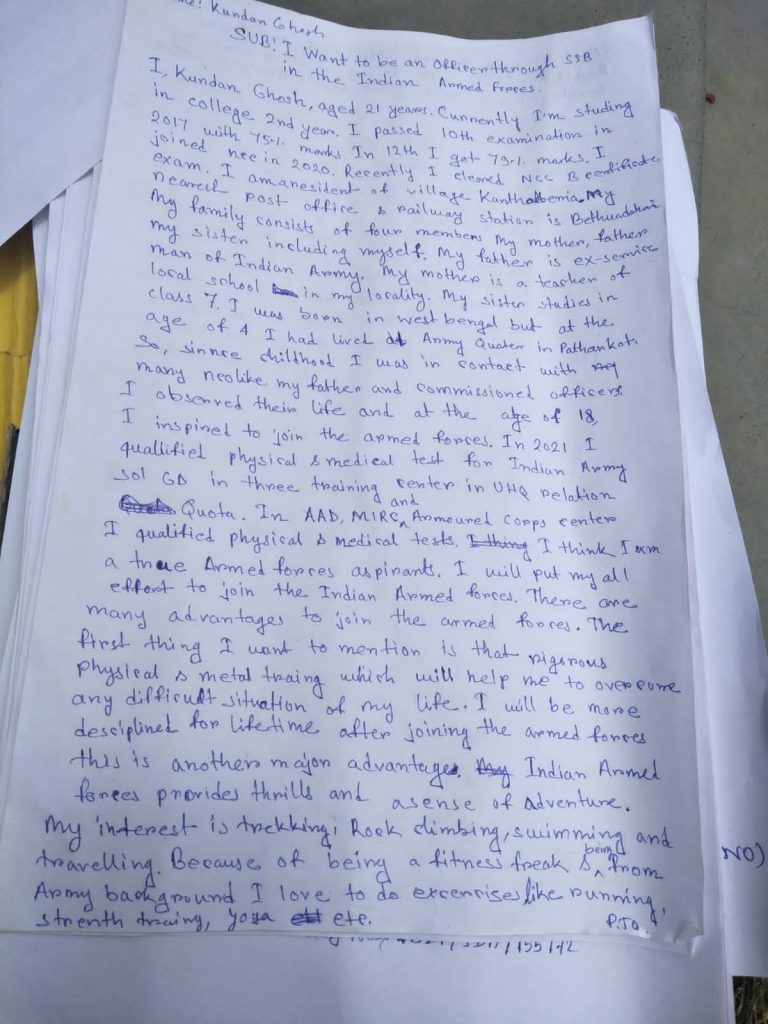 me: Kundan Ghosh
SUB: I Want to be an Officer through SSB
in the Indian Armed Forces.
I, Kundan Ghosh, aged 21 years. Currently I'm studing
in college 2nd year. I passed 10th examination in
2017 with 75% marks. In 12th I got 79% marks. I
joined ncc in 2020. Recently I cleared NCC B certificate
exam. I am a resident of village Kanthalberia. My
nearest post office & railway station is
My family consists of four members My mother, father
my sister including myself. My father is ex-service
man of Indian Army. My mother is a teacher of
local school in my locality. My sister studies in
class 7. I was born in west bengal but at the
age of 4 I had lived at Army Quater in Pathankot.
So, sinnce childhood I was in contact with
many nco like my father and commissioned officers.
I observed their life and at the age of 18,
I inspired to join the armed forces. In 2021 I
quallified physical & medical test for Indian Army
sol GD in three training center in UHQ relation
Quota. In AAD, MIRC and Armoured Corps center
I qualified physical & medical tests. I thing I think I am
a true Armed forces aspirants. I will put my all
effort to join the Indian Armed forces. There are
many advantages to join the armed forces. The
first thing I want to mention is that rigorous
physical & metal traing which will help me to overcome
any difficult situation of my life. I will be more
desciplined for lifetime after joining the armed forces
this is another major advantage. My Indian Armed
forces provides thrills and a sense of adventure.
My interest is trekking, Rock climbing, swimming and
travelling. Because of being a fitness freak & being from
Army background I love to do excercises like running,
strenth traing, yoga etc.
P.T.O.
NO)
155/42